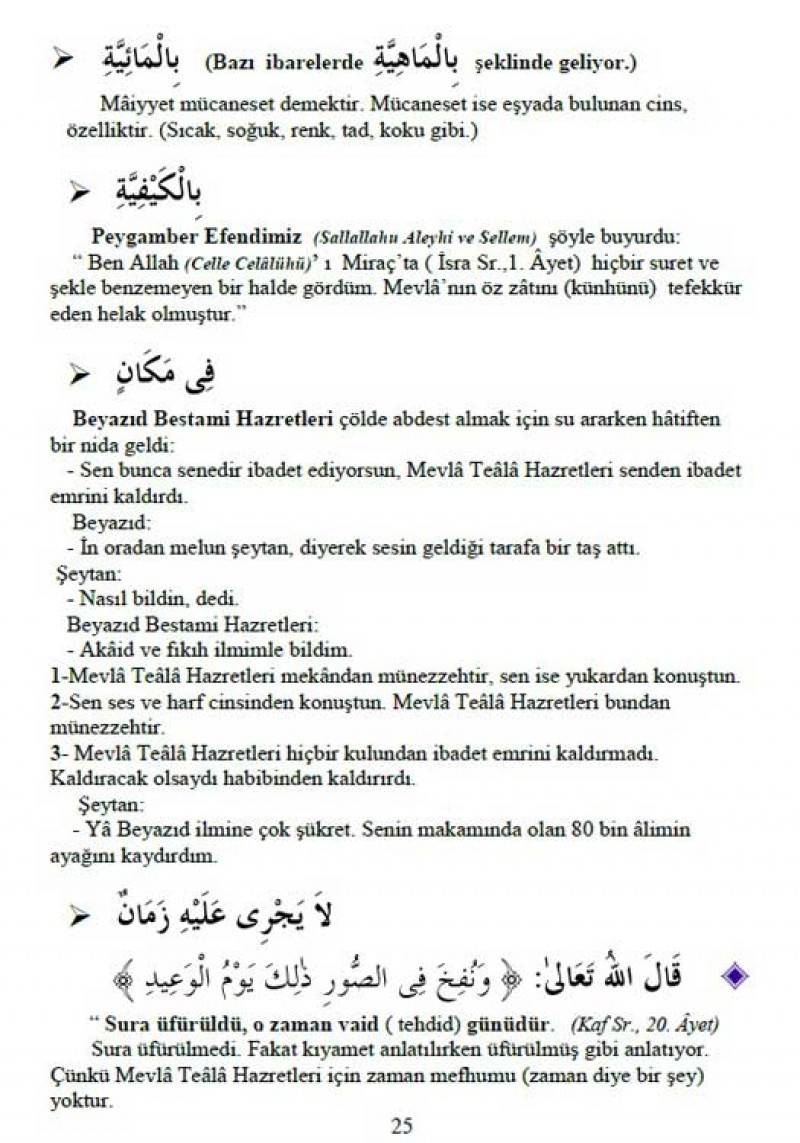 ➢ بِالْمَائِيَّةِ (Bazı ibarelerde بِالْمَاهِيَّةِ şeklinde geliyor.)
Mâiyyet mücaneset demektir. Mücaneset ise eşyada bulunan cins,
özelliktir. (Sıcak, soğuk, renk, tad, koku gibi.)
➢ بِالْكَيْفِيَّةِ
Peygamber Efendimiz (Sallallahu Aleyhi ve Sellem) şöyle buyurdu:
“ Ben Allah (Celle Celâlühü)’ ı Miraç’ta ( İsra Sr.,1. Âyet) hiçbir suret ve
şekle benzemeyen bir halde gördüm. Mevlâ’nın öz zâtını (künhünü) tefekkür
eden helak olmuştur.”
➢ فِى مَكَانٍ
Beyazıd Bestami Hazretleri çölde abdest almak için su ararken hâtiften
bir nida geldi:
- Sen bunca senedir ibadet ediyorsun, Mevlâ Teâlâ Hazretleri senden ibadet
emrini kaldırdı.
Beyazıd:
- İn oradan melun şeytan, diyerek sesin geldiği tarafa bir taş attı.
Şeytan:
- Nasıl bildin, dedi.
Beyazıd Bestami Hazretleri:
- Akâid ve fıkıh ilmimle bildim.
1-Mevlâ Teâlâ Hazretleri mekândan münezzehtir, sen ise yukardan konuştun.
2-Sen ses ve harf cinsinden konuştun. Mevlâ Teâlâ Hazretleri bundan
münezzehtir.
3- Mevlâ Teâlâ Hazretleri hiçbir kulundan ibadet emrini kaldırmadı.
Kaldıracak olsaydı habibinden kaldırırdı.
Şeytan:
- Yâ Beyazıd ilmine çok şükret. Senin makamında olan 80 bin âlimin
ayağını kaydırdım.
➢ لاَ يَجْرِى عَلَيْهِ زَمَانٌ
قَالَ اللهُ تَعَالىٰ: ﴿ وَنُفِخَ فِى الصُّورِ ذٰلِكَ يَوْمُ الْوَعِيدِ ﴾
“ Sura üfürüldü, o zaman vaid ( tehdid) günüdür. (Kaf Sr., 20. Âyet)
Sura üfürülmedi. Fakat kıyamet anlatılırken üfürülmüş gibi anlatıyor.
Çünkü Mevlâ Teâlâ Hazretleri için zaman mefhumu (zaman diye bir şey)
yoktur.
25